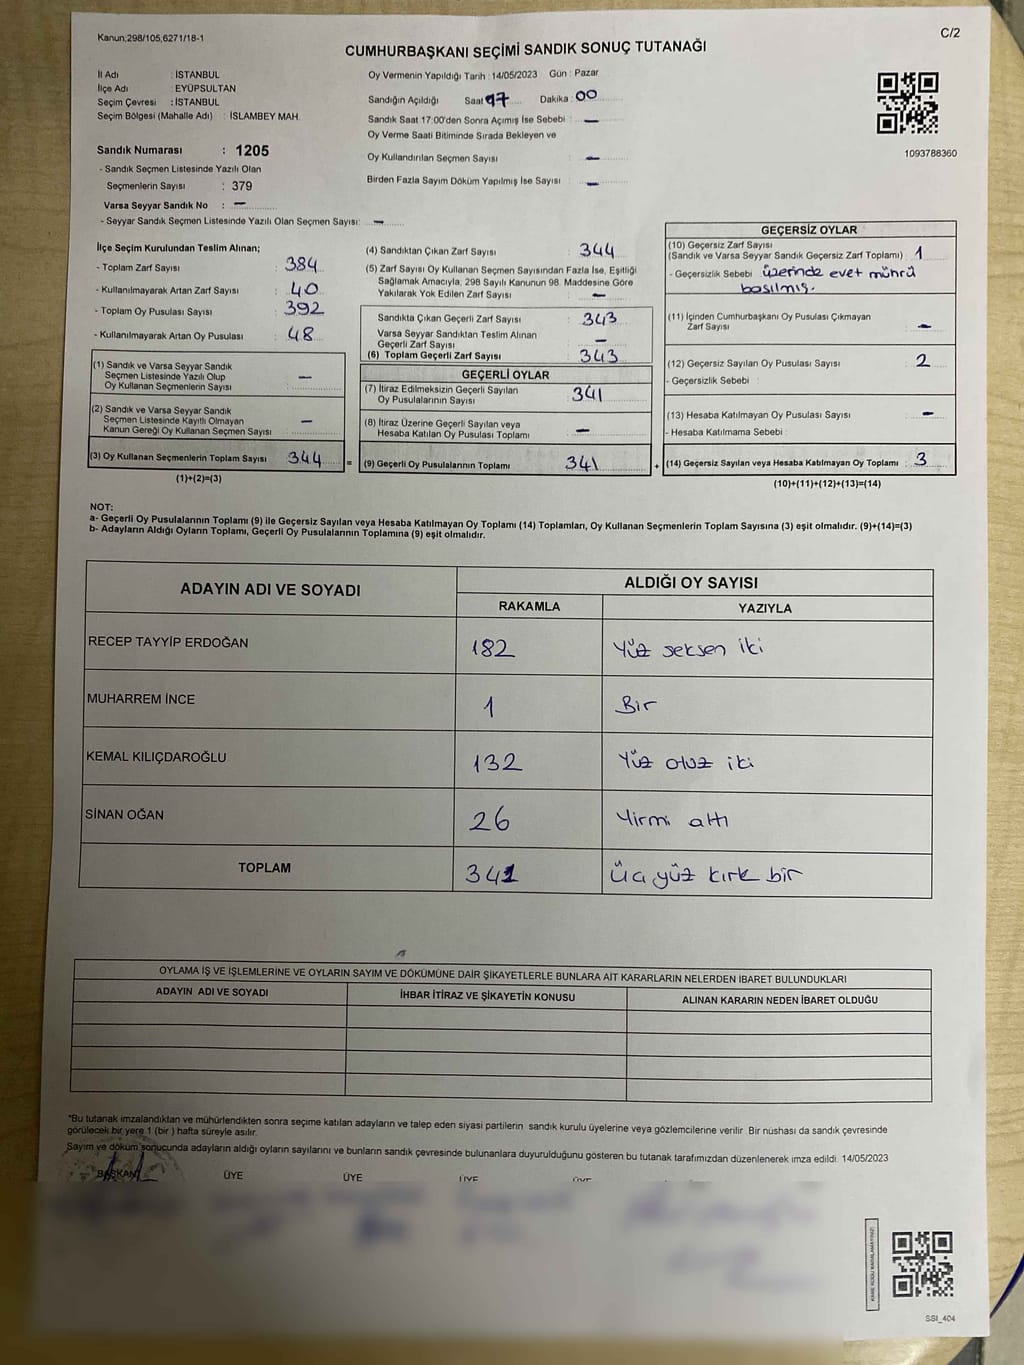 Kanun;298/105,6271/18-1
C/2
CUMHURBAŞKANI SEÇİMİ SANDIK SONUÇ TUTANAĞI
İl Adı : İSTANBUL
İlçe Adı : EYÜPSULTAN
Seçim Çevresi : İSTANBUL
Seçim Bölgesi (Mahalle Adı) : İSLAMBEY MAH.
Sandık Numarası : 1205
- Sandık Seçmen Listesinde Yazılı Olan
Seçmenlerin Sayısı : 379
Varsa Seyyar Sandık No : —
- Seyyar Sandık Seçmen Listesinde Yazılı Olan Seçmen Sayısı: —
Oy Vermenin Yapıldığı Tarih : 14/05/2023 Gün : Pazar
Sandığın Açıldığı Saat 17 Dakika : 00
Sandık Saat 17:00'den Sonra Açımış İse Sebebi : —
Oy Verme Saati Bitiminde Sırada Bekleyen ve
Oy Kullandırılan Seçmen Sayısı : —
Birden Fazla Sayım Döküm Yapılmış İse Sayısı : —
1093788360
İlçe Seçim Kurulundan Teslim Alınan;
- Toplam Zarf Sayısı : 384
- Kullanılmayarak Artan Zarf Sayısı : 40
- Toplam Oy Pusulası Sayısı : 392
- Kullanılmayarak Artan Oy Pusulası : 48
(1) Sandık ve Varsa Seyyar Sandık
Seçmen Listesinde Yazılı Olup
Oy Kullanan Seçmenlerin Sayısı —
(2) Sandık ve Varsa Seyyar Sandık
Seçmen Listesinde Kayıtlı Olmayan
Kanun Gereği Oy Kullanan Seçmen Sayısı —
(3) Oy Kullanan Seçmenlerin Toplam Sayısı 344 =
(1)+(2)=(3)
(4) Sandıktan Çıkan Zarf Sayısı : 344
(5) Zarf Sayısı Oy Kullanan Seçmen Sayısından Fazla İse, Eşitliği
Sağlamak Amacıyla, 298 Sayılı Kanunun 98. Maddesine Göre
Yakılarak Yok Edilen Zarf Sayısı : —
Sandıkta Çıkan Geçerli Zarf Sayısı : 343
Varsa Seyyar Sandıktan Teslim Alınan
Geçerli Zarf Sayısı : —
(6) Toplam Geçerli Zarf Sayısı : 343
GEÇERLİ OYLAR
(7) İtiraz Edilmeksizin Geçerli Sayılan
Oy Pusulalarının Sayısı : 341
(8) İtiraz Üzerine Geçerli Sayılan veya
Hesaba Katılan Oy Pusulası Toplamı : —
(9) Geçerli Oy Pusulalarının Toplamı : 341 +
GEÇERSİZ OYLAR
(10) Geçersiz Zarf Sayısı
(Sandık ve Varsa Seyyar Sandık Geçersiz Zarf Toplamı) : 1
- Geçersizlik Sebebi : üzerinde evet mührü
basılmış.
(11) İçinden Cumhurbaşkanı Oy Pusulası Çıkmayan
Zarf Sayısı : —
(12) Geçersiz Sayılan Oy Pusulası Sayısı : 2
- Geçersizlik Sebebi :
(13) Hesaba Katılmayan Oy Pusulası Sayısı : —
- Hesaba Katılmama Sebebi :
(14) Geçersiz Sayılan veya Hesaba Katılmayan Oy Toplamı : 3
(10)+(11)+(12)+(13)=(14)
NOT:
a- Geçerli Oy Pusulalarının Toplamı (9) ile Geçersiz Sayılan veya Hesaba Katılmayan Oy Toplamı (14) Toplamları, Oy Kullanan Seçmenlerin Toplam Sayısına (3) eşit olmalıdır. (9)+(14)=(3)
b- Adayların Aldığı Oyların Toplamı, Geçerli Oy Pusulalarının Toplamına (9) eşit olmalıdır.
ADAYIN ADI VE SOYADI
ALDIĞI OY SAYISI
RAKAMLA YAZIYLA
RECEP TAYYİP ERDOĞAN 182 Yüz seksen iki
MUHARREM İNCE 1 Bir
KEMAL KILIÇDAROĞLU 132 Yüz otuz iki
SİNAN OĞAN 26 Yirmi altı
TOPLAM 341 Üç yüz kırk bir
OYLAMA İŞ VE İŞLEMLERİNE VE OYLARIN SAYIM VE DÖKÜMÜNE DAİR ŞİKAYETLERLE BUNLARA AİT KARARLARIN NELERDEN İBARET BULUNDUKLARI
ADAYIN ADI VE SOYADI İHBAR İTİRAZ VE ŞİKAYETİN KONUSU ALINAN KARARIN NEDEN İBARET OLDUĞU
*Bu tutanak imzalandıktan ve mühürlendikten sonra seçime katılan adayların ve talep eden siyasi partilerin sandık kurulu üyelerine veya gözlemcilerine verilir. Bir nüshası da sandık çevresinde
görülecek bir yere 1 (bir ) hafta süreyle asılır.
Sayım ve döküm sonucunda adayların aldığı oyların sayılarını ve bunların sandık çevresinde bulunanlara duyurulduğunu gösteren bu tutanak tarafımızdan düzenlenerek imza edildi. 14/05/2023
BAŞKAN ÜYE ÜYE ÜYE ÜYE
SSİ_404